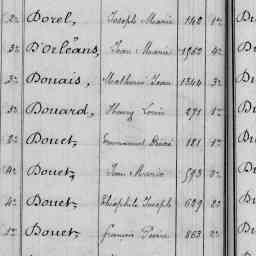 2e Dorel, Joseph Marie 140 1e
3e D'Orléans, Jean Marie 1962 4e
3e Douais, Mathurin Jean 1344 3e
3e Douard, Henry Louis 271 1e
2e Douet, Emmanuel 181 1e
4e Douet, Jean Marie 593 2e
4e Douet, Théophile Joseph 629 2e
1e Douet, Francis Pierre 863 2e